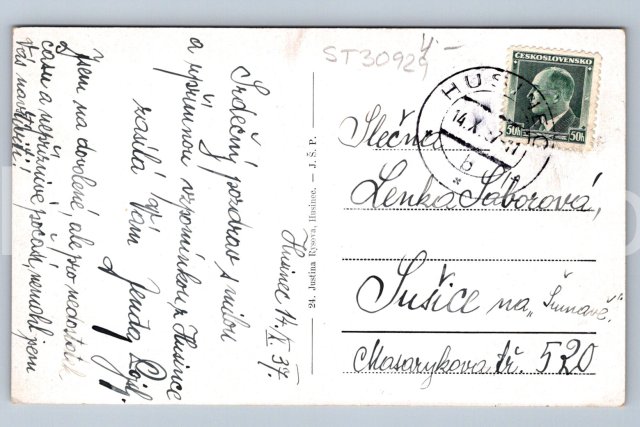 ST30929
4-
ČESKOSLOVENSKO
50h
50h
HUSINEC
14.X.37-11
Slečna
Lenka Šaborová,
Sušice na „Šumavě".
Masarykova tř. 520
24. Justina Rysova, Husinec. — J. Š. P.
Husinec 14.X.37.
Srdečný pozdrav s milou
a upřímnou vzpomínkou z Husince
zasílá Vám Jenda
Jsem na dovolené, ale pro nedostatek
času a nepříznivé počasí, nemohl jsem
Vás navštívit!